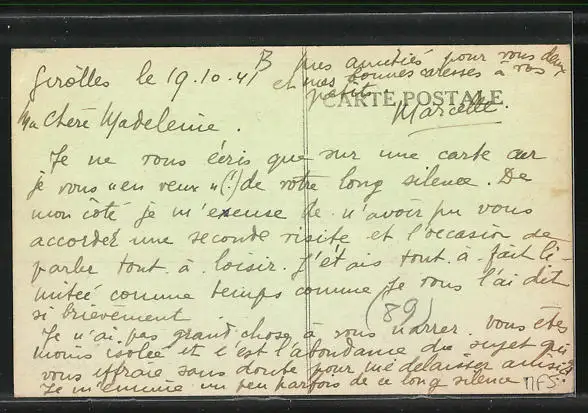 Girolles le 19.10.41
B mes amitiés pour vous deux
et mes bonnes caresses à vos
petits.
CARTE POSTALE
Marcelle.
Ma Chère Madeleine.
Je ne vous écris que sur une carte car
je vous "en veux" (!) de votre long silence. De
mon côté je m'excuse de n'avoir pu vous
accorder une seconde visite et l'occasion de
parler tout à loisir. J'étais tout à fait li-
mitée comme temps comme je vous l'ai dit
si brièvement
(89)
Je n'ai pas grand chose à vous narrer. Vous êtes
moins isolée et c'est l'abondance du sujet qui
vous effraie sans doute pour me délaisser ainsi
Je m'ennuie un peu parfois de ce long silence